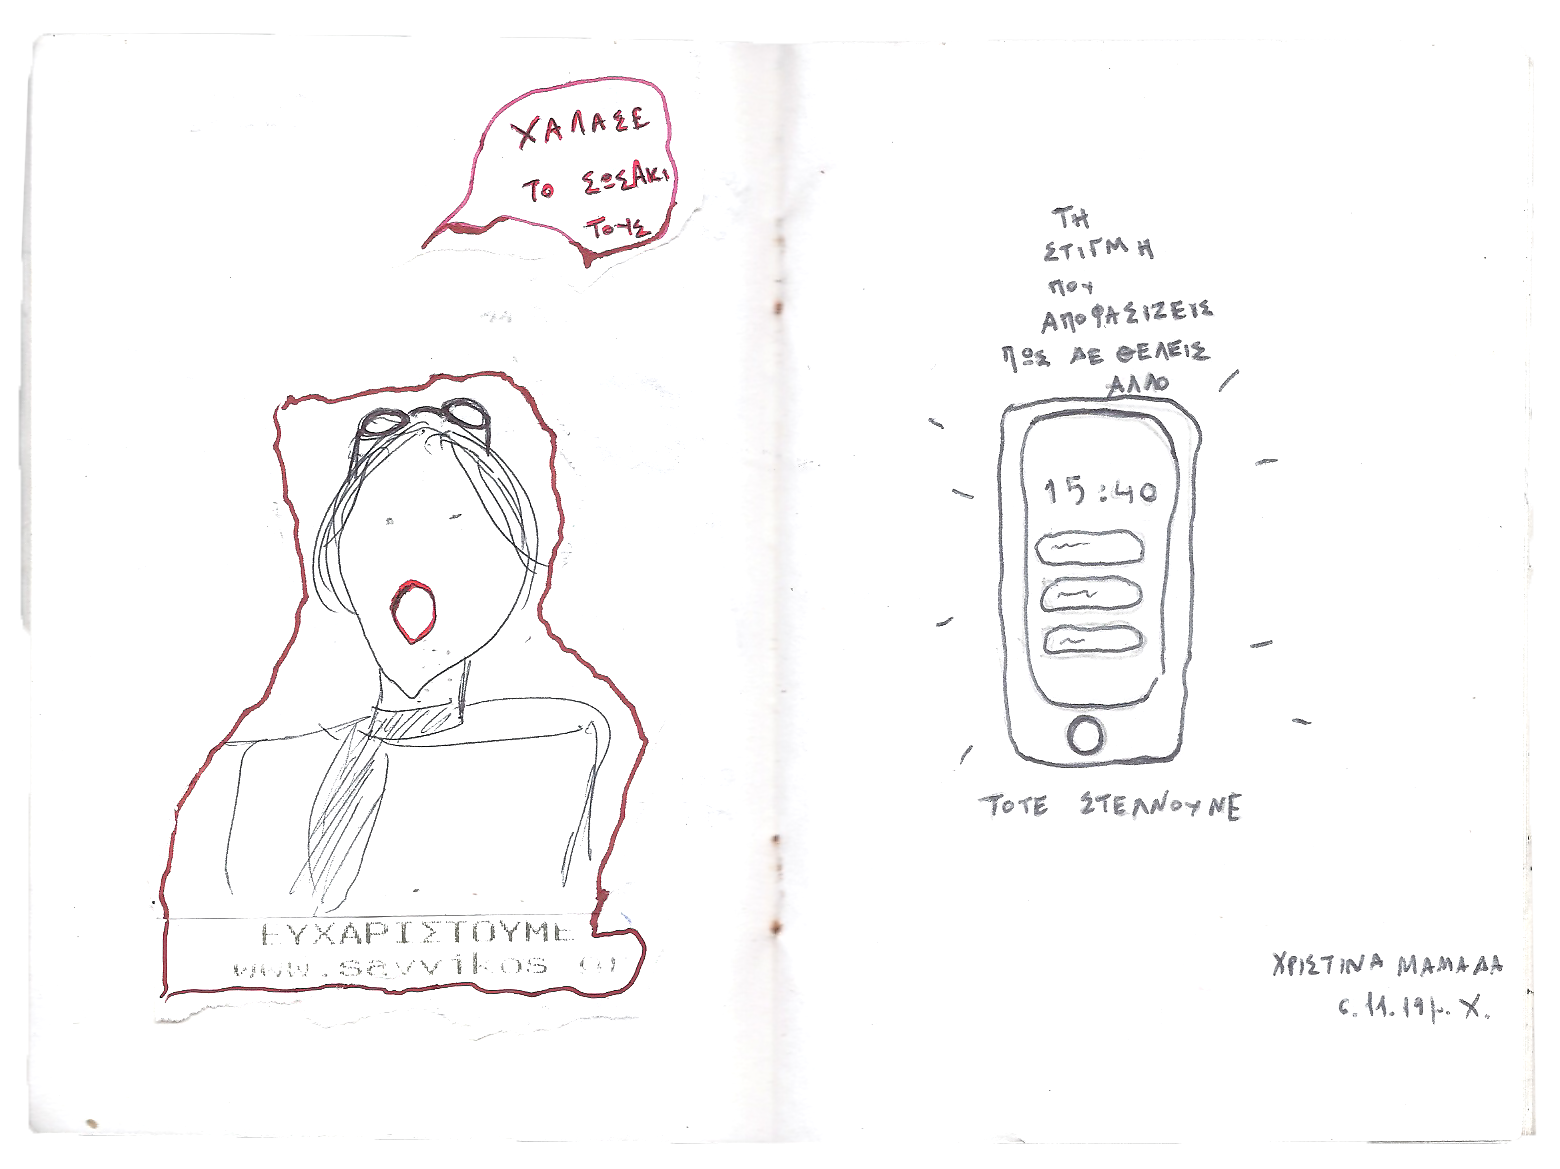 ΧΑΛΑΣΕ
ΤΟ ΣΩΣΑΚΙ
ΤΟΥΣ
ΕΥΧΑΡΙΣΤΟΥΜΕ
www.savvikos.gr
ΤΗ
ΣΤΙΓΜΗ
ΠΟΥ
ΑΠΟΦΑΣΙΖΕΙΣ
ΠΩΣ ΔΕ ΘΕΛΕΙΣ
ΑΛΛΟ
15:40
ΤΟΤΕ ΣΤΕΛΝΟΥΝΕ
ΧΡΙΣΤΙΝΑ ΜΑΜΑΔΑ
6.11.19μ.Χ.